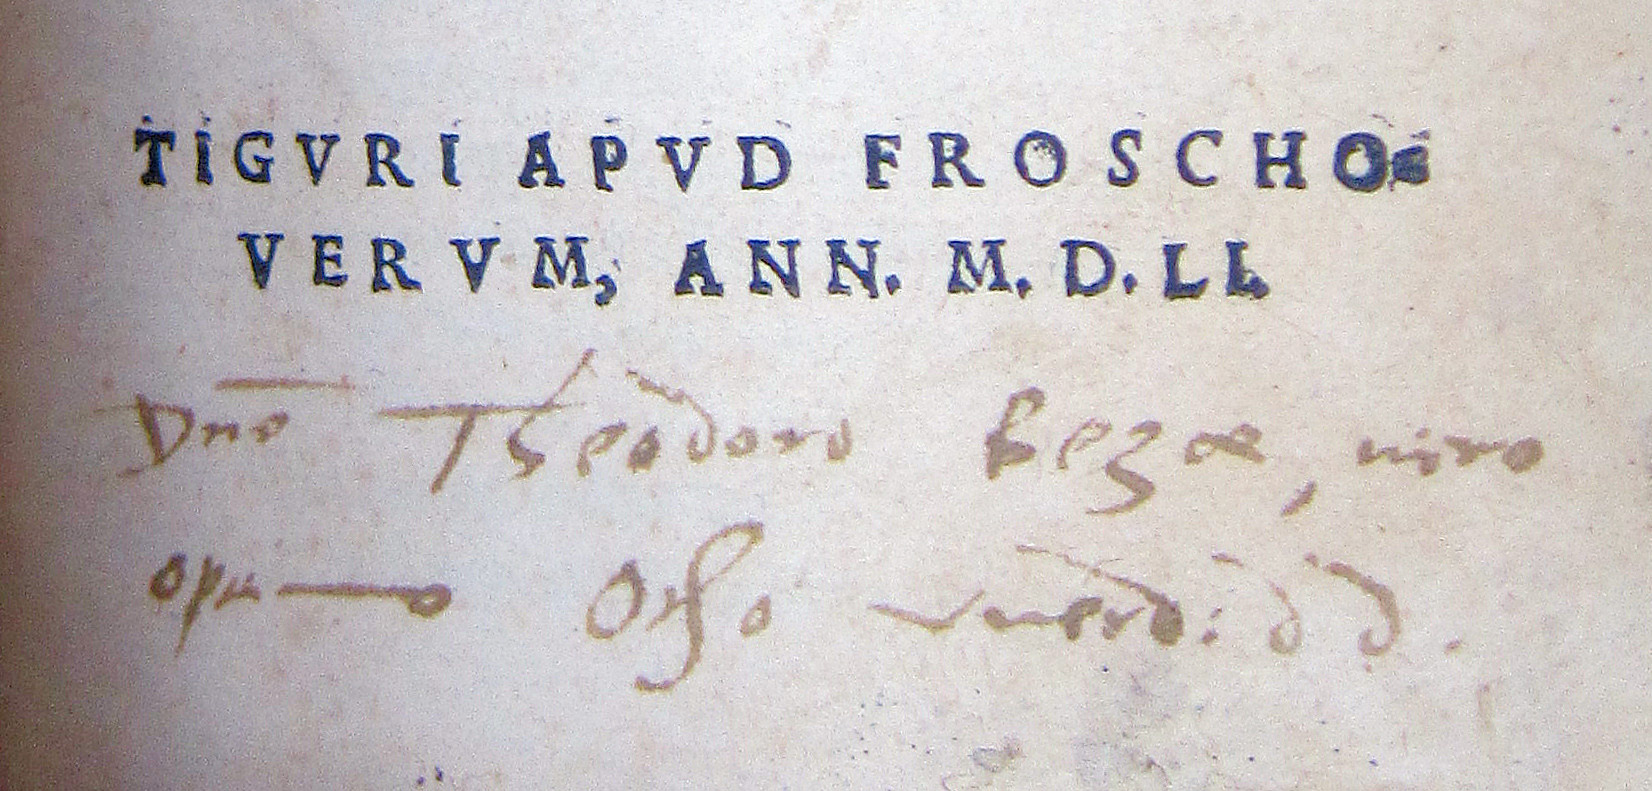 TIGVRI APVD FROSCHO=
VERVM, ANN. M. D. LI.
Dno Theodoro Bezae, viro
opti—o Otho Vuerd: d d.